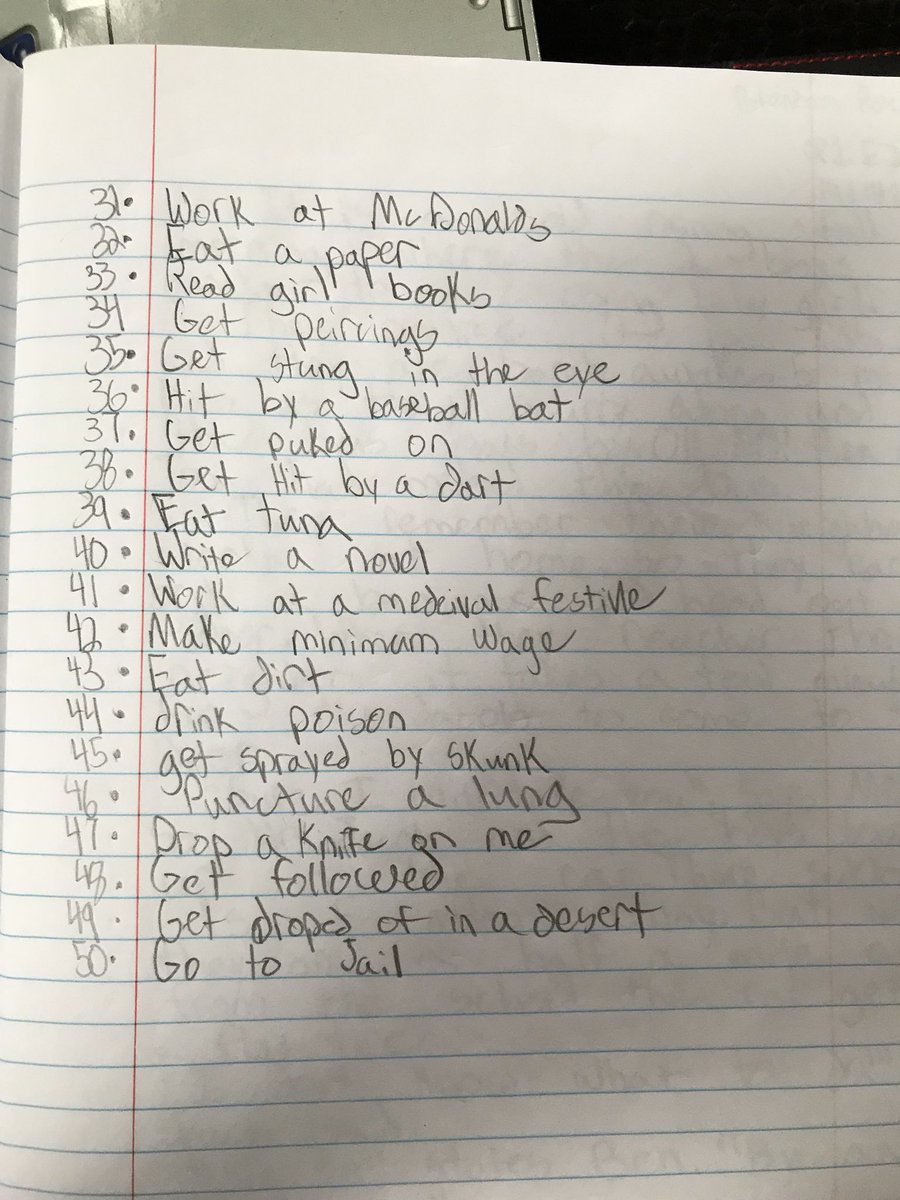 31. Work at McDonalds
32. Eat a paper
33. Read girl books
34 Get peircings
35. Get stung in the eye
36. Hit by a baseball bat
37. Get puked on
38. Get Hit by a dart
39. Eat tuna
40. Write a novel
41. Work at a medeival festivle
42. Make minimum wage
43. Eat dirt
44. drink poison
45. get sprayed by skunk
46. Puncture a lung
47. Drop a knife on me
48. Get followed
49. Get droped of in a desert
50. Go to Jail